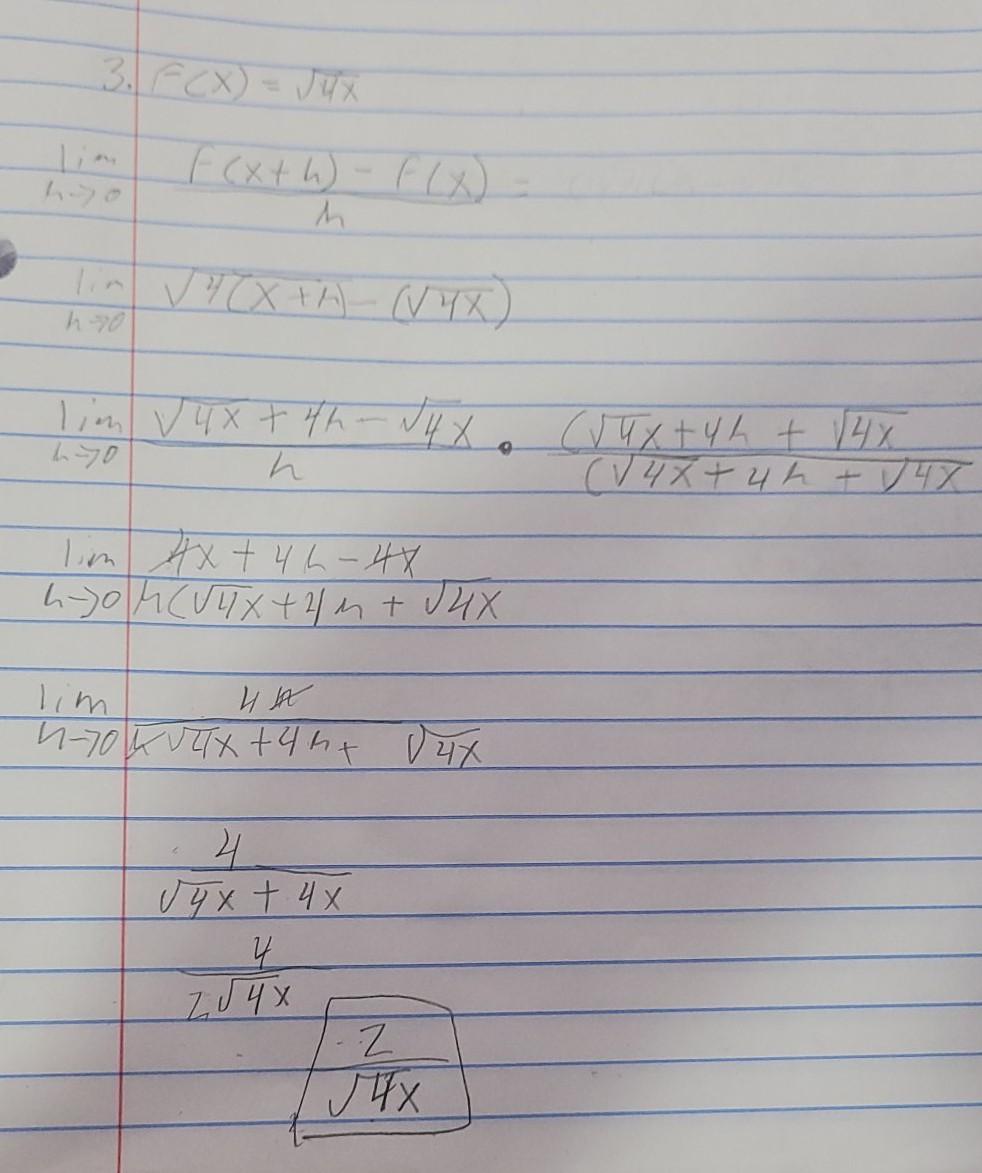 3. F(x) = √4x
lim h→0 F(x+h) - F(x) / h =
lim h→0 √4(x+h) - (√4x)
lim h→0 √4x + 4h - √4x / h • (√4x + 4h + √4x / (√4x + 4h + √4x
lim h→0 4x + 4h - 4x / h(√4x + 4h + √4x
lim h→0 4h / h√4x + 4h + √4x
4 / √4x + 4x
4 / 2√4x
2 / √4x